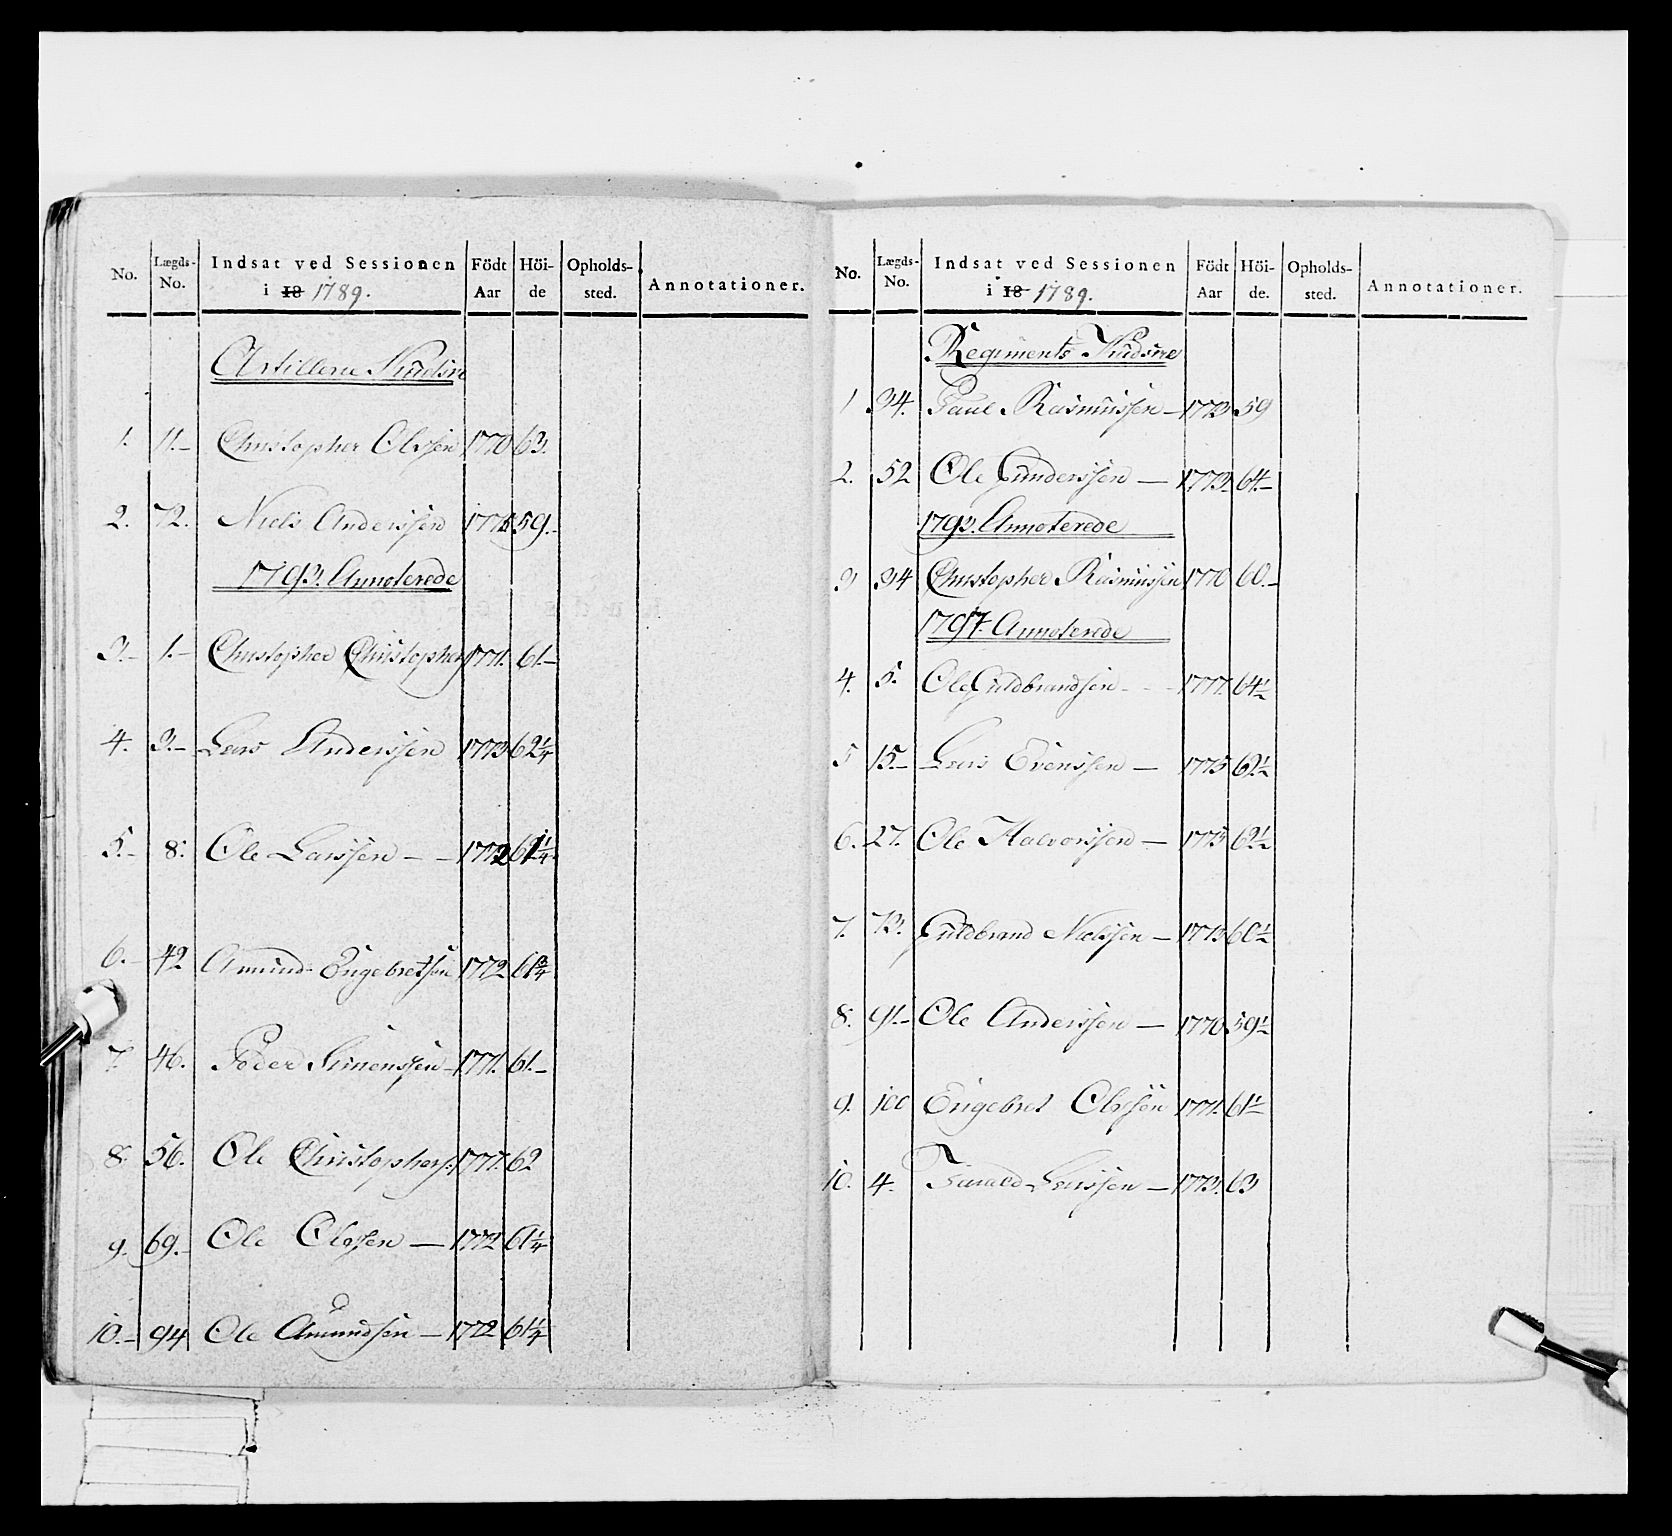 No. Lægds-No. Indsat ved Sessionen i 18 1789. Födt Aar Höi-de Opholds-sted. Annotationer.
Artillerie Kudske
1. 11.– Christopher Olssen 1770 63.
2. 72. Niels Anderssen 59.–
1793. Annoterede
3.– 1.– Christopher Christophers 1771. 61.–
4. 3.– Lars Anderssen 1773 62 1/4
5.– 8. Ole Larssen – – 1772 61 1/4
6.– 42 Amund Engebretsen 1772 61 3/4
7. 46. Peder Simenssen – 1771. 61.–
8. 56. Ole Christophers: 1771. 62
9. 69.– Ole Olssen — 1772 61 1/4
10.– 94 Ole Amundsen — 1772 61 1/4
No. Lægds-No. Indsat ved Sessionen i 18 1789. Födt Aar Höi-de. Opholds-sted. Annotationer.
Regiments Kudske
1 34. Paul Rasmussen – 1773 59
2. 52 Ole Gunderssen — 1772 64.–
1793. Annoterede
3 34 Christopher Rasmussen 1770 60.–
1797. Annoterede
4. 5. Ole Guldbrandsen - - - 1777. 64 1/2
5 15.– Lars Evenssen — 1775 62 1/2
6. 27. Ole Halvorssen — 1775 62 1/2
7. 73. Guldbrand Nielssen — 1773 60 1/2
8. 91.– Ole Anderssen — 1770 59 1/2
9. 100 Engebret Olssen 1771. 61 1/2
10. 4. Larssen — 1773. 63